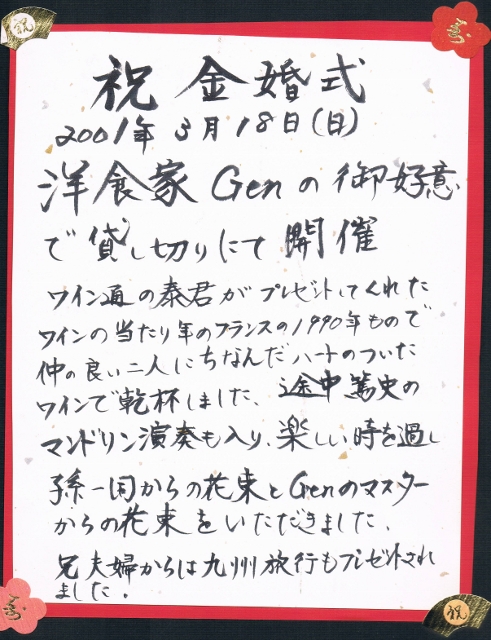 祝
寿
祝 金婚式
2001年 3月18日(日)
洋食家 Genの御好意
で貸し切りにて開催
ワイン通の泰君がプレゼントしてくれた
ワインの当たり年のフランスの1990年もので
仲の良い二人にちなんだハートのついた
ワインで乾杯しました、途中篤史の
マンドリン演奏も入り、楽しい時を過し
孫一同からの花束とGenのマスター
からの花束をいただきました、
兄夫婦からは九州旅行もプレゼントされ
ました。
寿
祝